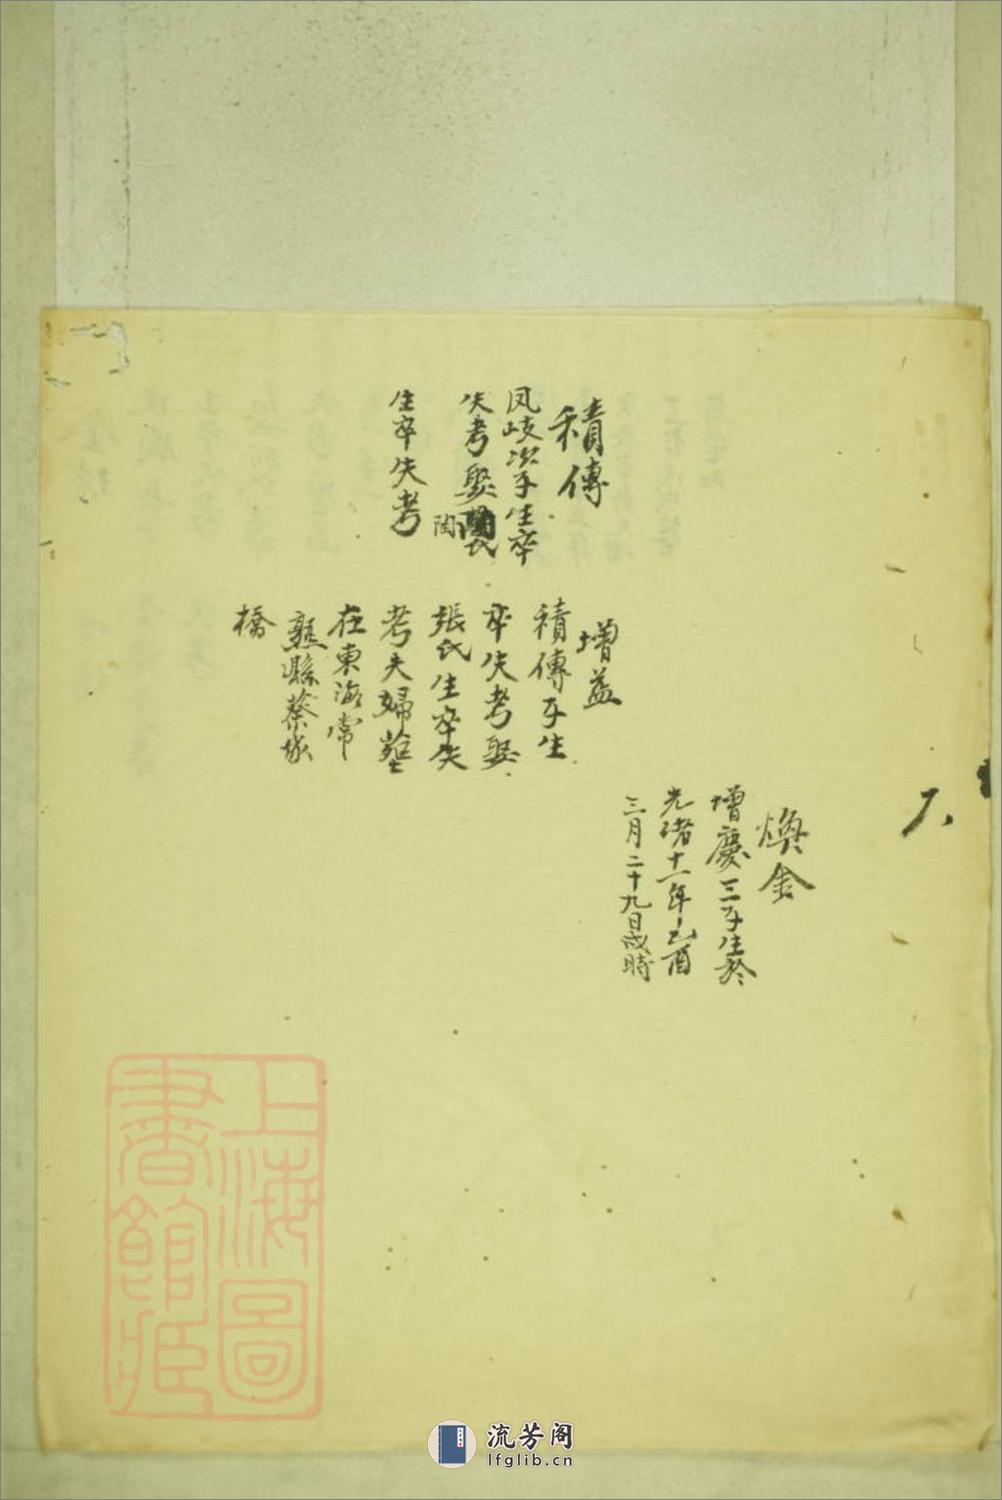 煥金
增慶三子生於
光緒十一年乙酉
三月二十九日戌時
增益
積傳子生
卒失考娶
張氏生卒失
考夫婦塟
在東海常
熟縣蔡城
橋
積傳
凤岐次子生卒
失考娶陶氏
陶
生卒失考
上海圖
書館藏
流芳阁
lfglib.cn